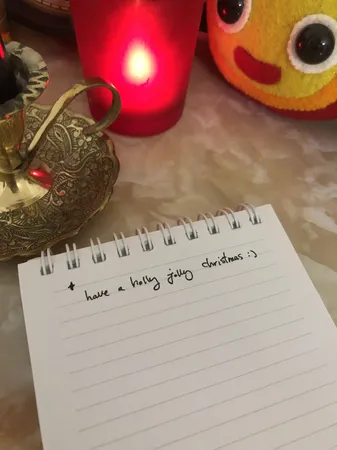 * have a holly jolly christmas :)